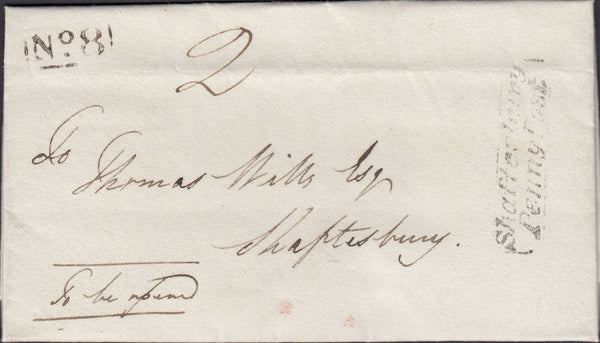 No. 8
2
To Thomas Wills Esq
Shaftesbury.
To be opened
Shaftesbury
Penny Post